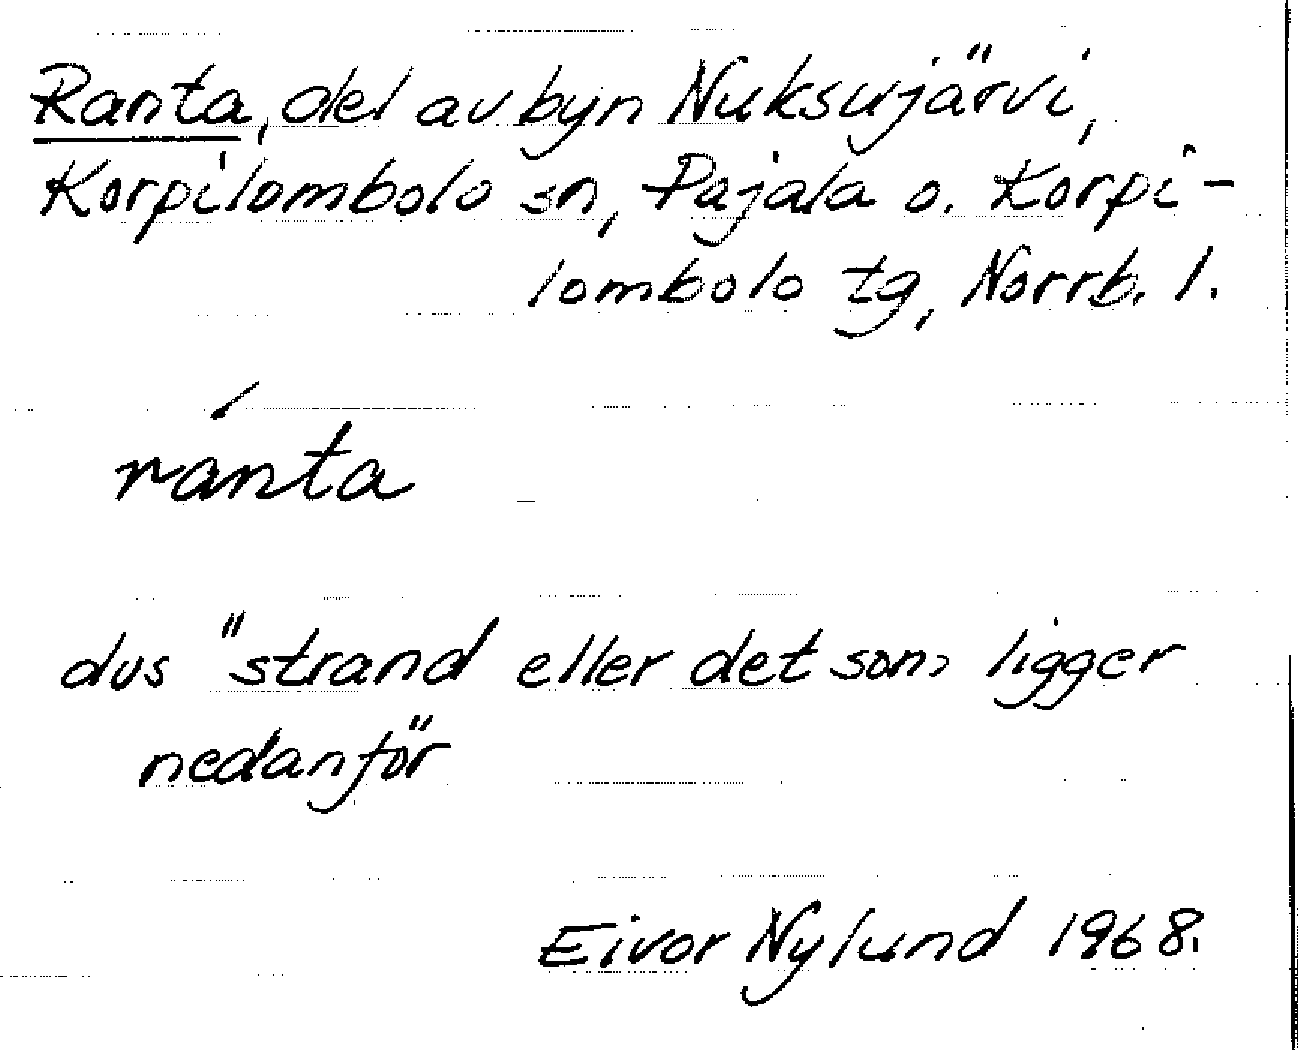 Ranta, del av byn Nuksujärvi,
Korpilombolo sn, Pajala o. Korpi-
lombolo tg, Norrb. l.
ránta
dvs "strand eller det som ligger
nedanför"
Eivor Nylund 1968.